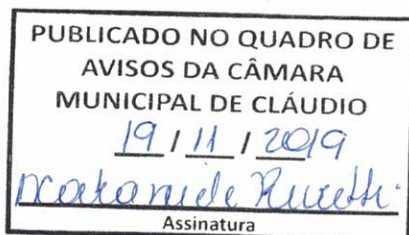 PUBLICADO NO QUADRO DE
AVISOS DA CÂMARA
MUNICIPAL DE CLÁUDIO
19 / 11 / 2019
Assinatura